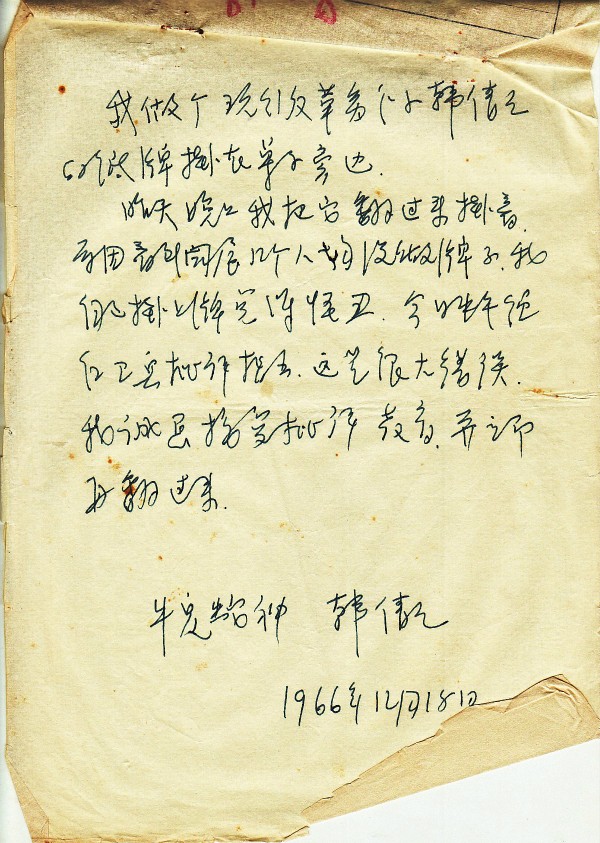 我做个现行反革命分子韩倩之
的 牌掛在单子旁边.
昨天晚上我把它翻过来掛着.
因看到同 几个人 没做牌子.我
自己掛 牌觉得怪丑.今 生午经
红卫兵批评指出.这是很大错误.
我诚恳接受批评教育.并立即
再翻过来.
牛鬼蛇神 韩倩之
1966年12月18日